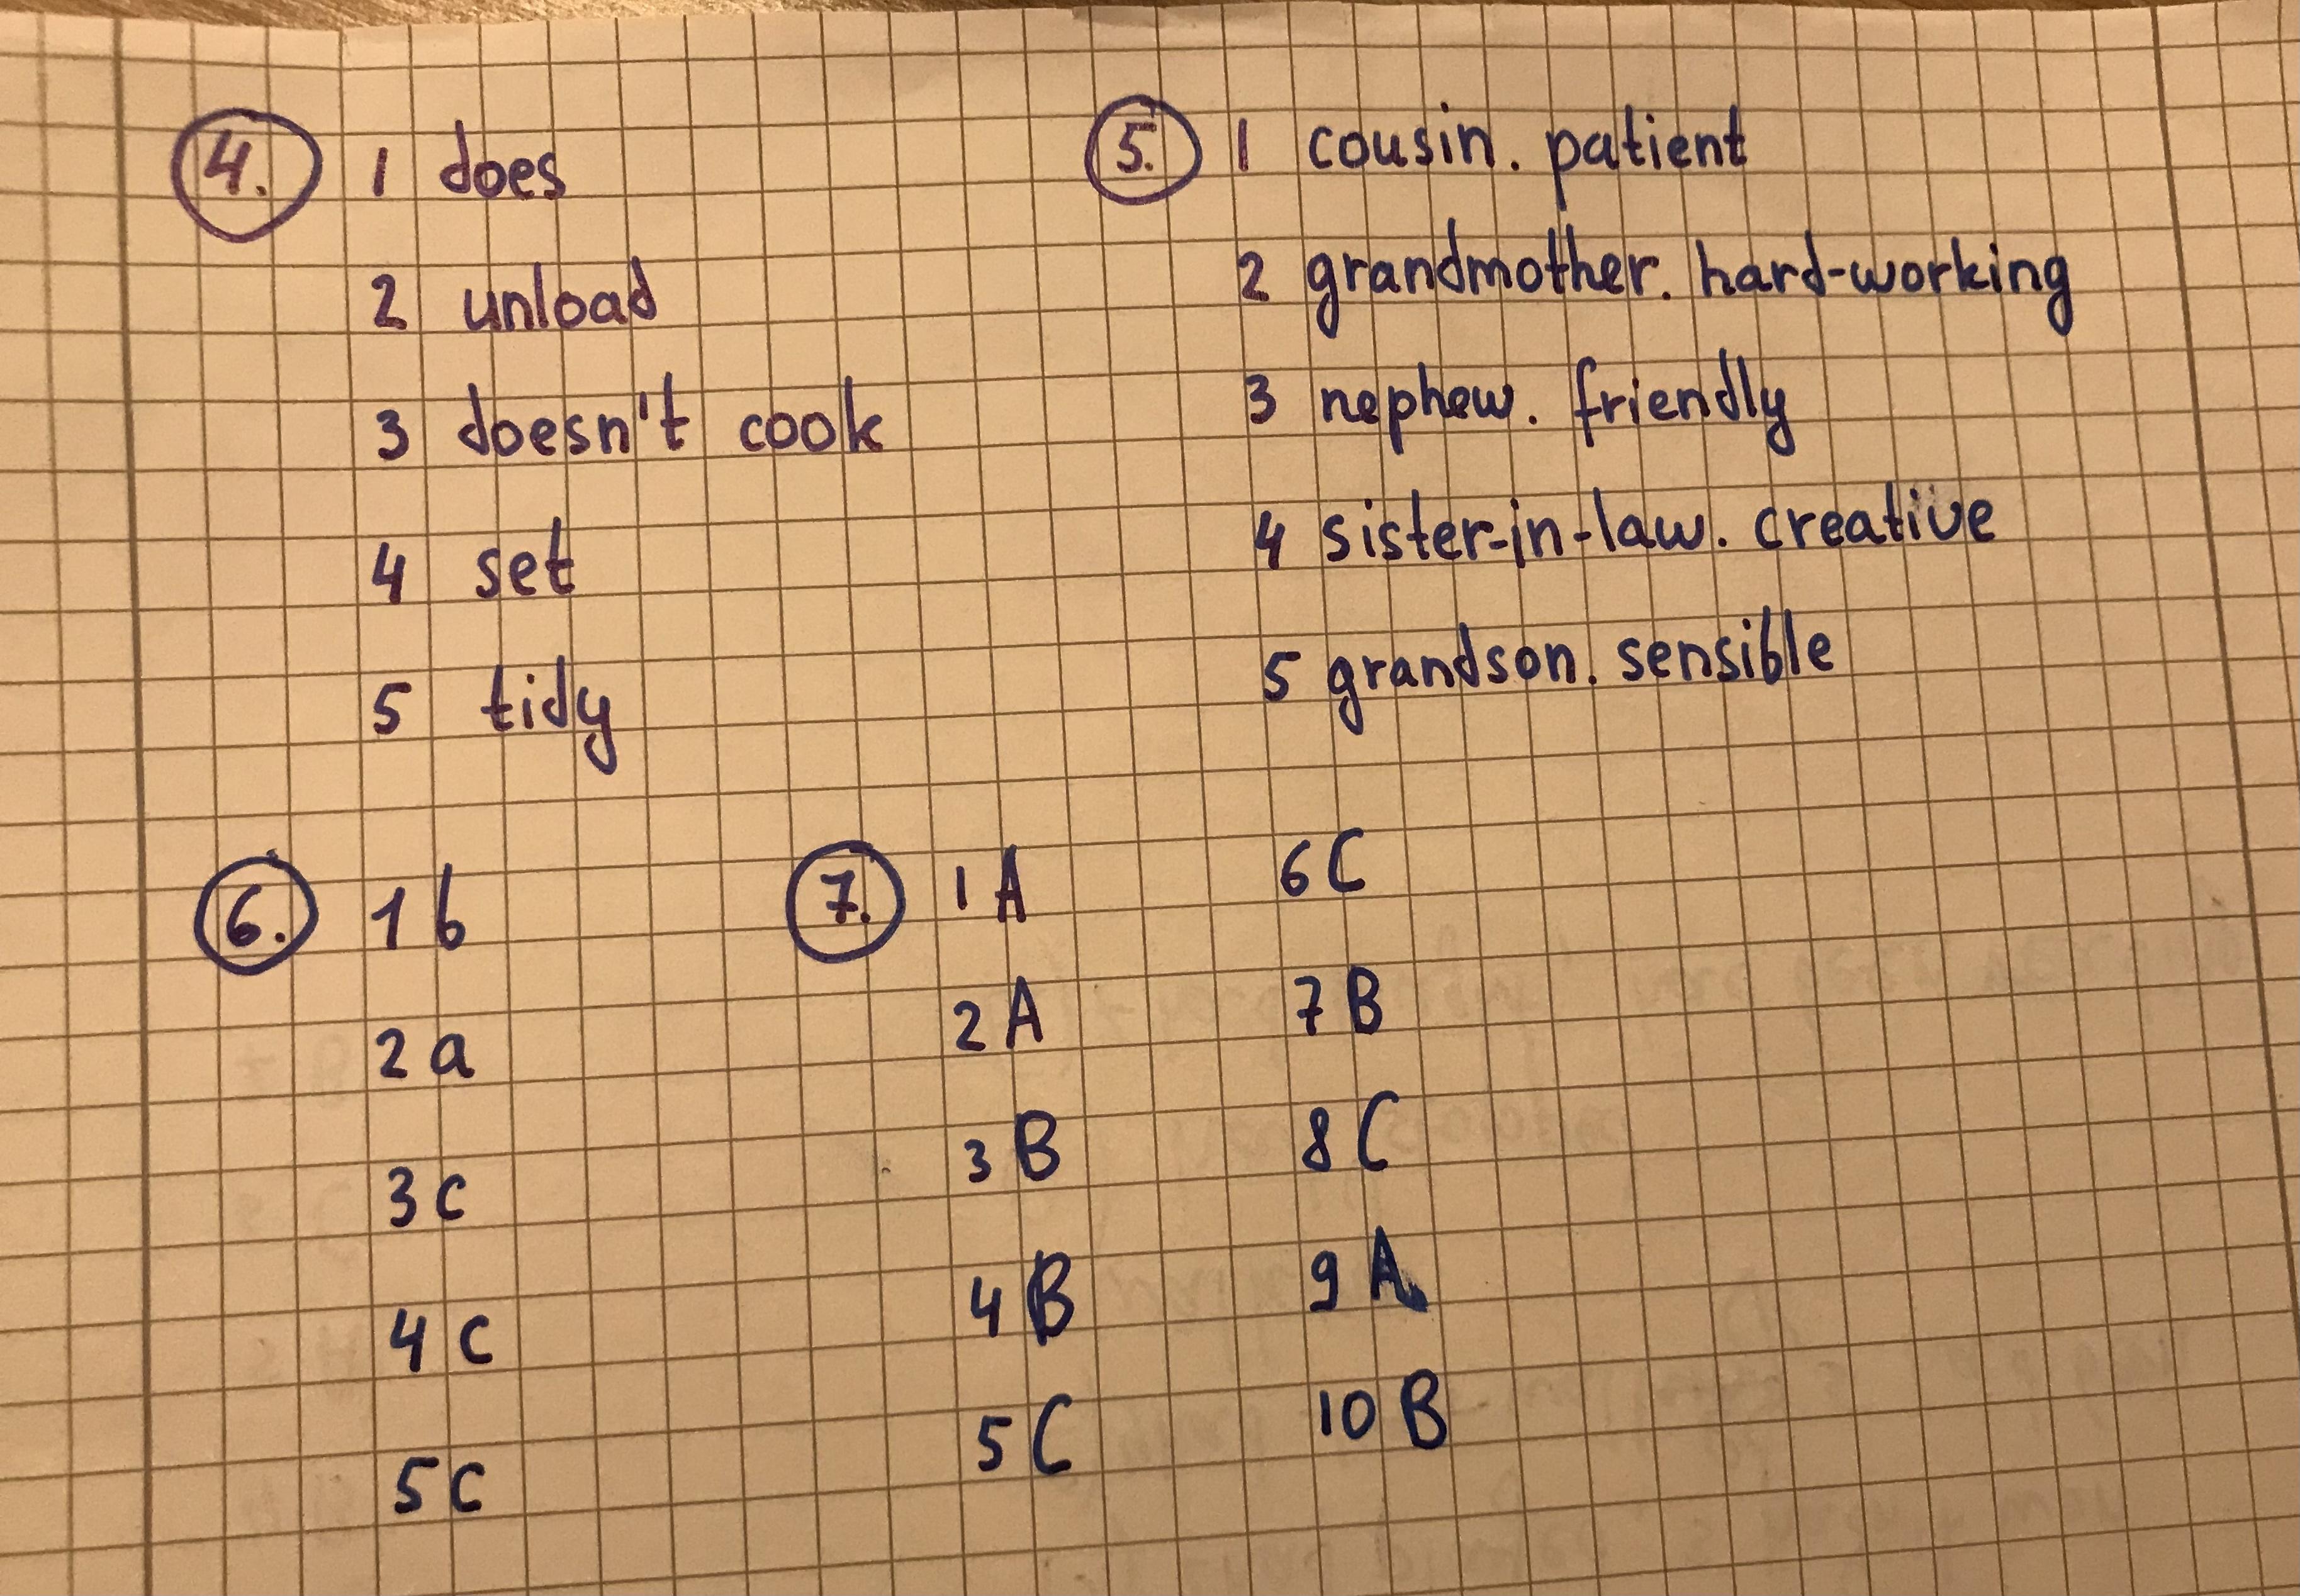 4. 1 does
2 unload
3 doesn't cook
4 set
5 tidy
5. 1 cousin. patient
2 grandmother. hard-working
3 nephew. friendly
4 sister-in-law. creative
5 grandson. sensible
6. 1 b
2 a
3 c
4 c
5 c
7. 1 A
2 A
3 B
4 B
5 C
6 C
7 B
8 C
9 A
10 B